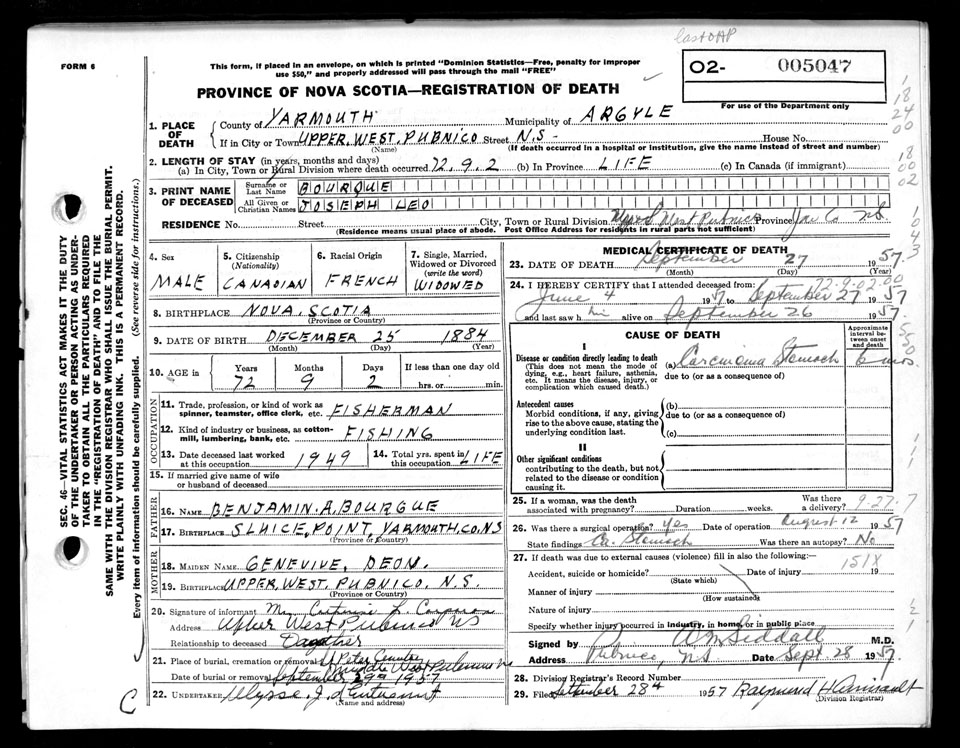 last OAP
FORM 6
This form, if placed in an envelope, on which is printed "Dominion Statistics—Free, penalty for improper use $50," and properly addressed will pass through the mail "FREE"
O2- 005047
For use of the Department only
PROVINCE OF NOVA SCOTIA—REGISTRATION OF DEATH
1. PLACE OF DEATH
County of YARMOUTH Municipality of ARGYLE
If in City or Town UPPER. WEST. PUBNICO Street N.S- House No.
(Name) (If death occurred in a hospital or institution, give the name instead of street and number)
2. LENGTH OF STAY (in years, months and days)
(a) In City, Town or Rural Division where death occurred 72.9.2 (b) In Province LIFE (c) In Canada (if immigrant)
3. PRINT NAME OF DECEASED
Surname or Last Name BOURQUE
All Given or Christian Names JOSEPH LEO
RESIDENCE No. Street City, Town or Rural Division Upper West Pubnico Province Yar Co NS
(Residence means usual place of abode. Post Office Address for residents in rural parts not sufficient)
4. Sex MALE
5. Citizenship (Nationality) CANADIAN
6. Racial Origin FRENCH
7. Single, Married, Widowed or Divorced (write the word) WIDOWED
8. BIRTHPLACE NOVA. SCOTIA
(Province or Country)
9. DATE OF BIRTH DECEMBER 25 1884
(Month) (Day) (Year)
10. AGE in Years 72 Months 9 Days 2 If less than one day old hrs. or min.
OCCUPATION
11. Trade, profession, or kind of work as spinner, teamster, office clerk, etc. FISHERMAN
12. Kind of industry or business, as cotton-mill, lumbering, bank, etc. FISHING
13. Date deceased last worked at this occupation 1949
14. Total yrs. spent in this occupation LIFE
15. If married give name of wife or husband of deceased
FATHER
16. NAME BENJAMIN. A. BOURGUE
17. BIRTHPLACE SLUICE, POINT, YARMOUTH, CO, NS
(Province or Country)
MOTHER
18. MAIDEN NAME GENEVIVE, DEON.
19. BIRTHPLACE UPPER, WEST, PUBNICO, N.S.
(Province or Country)
20. Signature of informant
Address Upper West Pubnico NS
Relationship to deceased Daugther
21. Place of burial, cremation or removal St Peter West Pubnico
Date of burial or removal September 29 1957
22. UNDERTAKER Ulysse J. d'Entremont
(Name and address)
C
MEDICAL CERTIFICATE OF DEATH
23. DATE OF DEATH September 27 1957
(Month) (Day) (Year)
24. I HEREBY CERTIFY that I attended deceased from: 72-9-02.00
June 4 1957 to September 27 1957
and last saw him alive on September 26 1957.
CAUSE OF DEATH
Approximate interval between onset and death
I
Disease or condition directly leading to death
(This does not mean the mode of dying, e.g., heart failure, asthenia, etc. It means the disease, injury, or complication which caused death.)
(a) Carcinoma Stomach 6 mos
due to (or as a consequence of)
Antecedent causes
Morbid conditions, if any, giving rise to the above cause, stating the underlying condition last.
(b)
due to (or as a consequence of)
(c)
II
Other significant conditions
contributing to the death, but not related to the disease or condition causing it.
25. If a woman, was the death associated with pregnancy? Duration weeks. Was there a delivery? 9-27.7
26. Was there a surgical operation? Yes Date of operation August 12 1957
State findings Ca. Stomach Was there an autopsy? No
27. If death was due to external causes (violence) fill in also the following:— 151X
Accident, suicide or homicide? Date of injury 19
(State which)
Manner of injury
(How sustained)
Nature of injury
Specify whether injury occurred in industry, in home, or in public place
Signed by Wm Siddall M.D.
Address Pubnico, NS Date Sept. 28 1957.
28. Division Registrar's Record Number
29. Filed September 28th 1957 Raymond H Amirault
(Division Registrar)
SEC. 46—VITAL STATISTICS ACT MAKES IT THE DUTY OF THE UNDERTAKER OR PERSON ACTING AS UNDERTAKER TO OBTAIN ALL THE PARTICULARS REQUIRED IN THE "REGISTRATION OF DEATH" AND TO FILE THE SAME WITH THE DIVISION REGISTRAR WHO SHALL ISSUE THE BURIAL PERMIT.
WRITE PLAINLY WITH UNFADING INK. THIS IS A PERMANENT RECORD.
Every item of information should be carefully supplied. (See reverse side for instructions.)